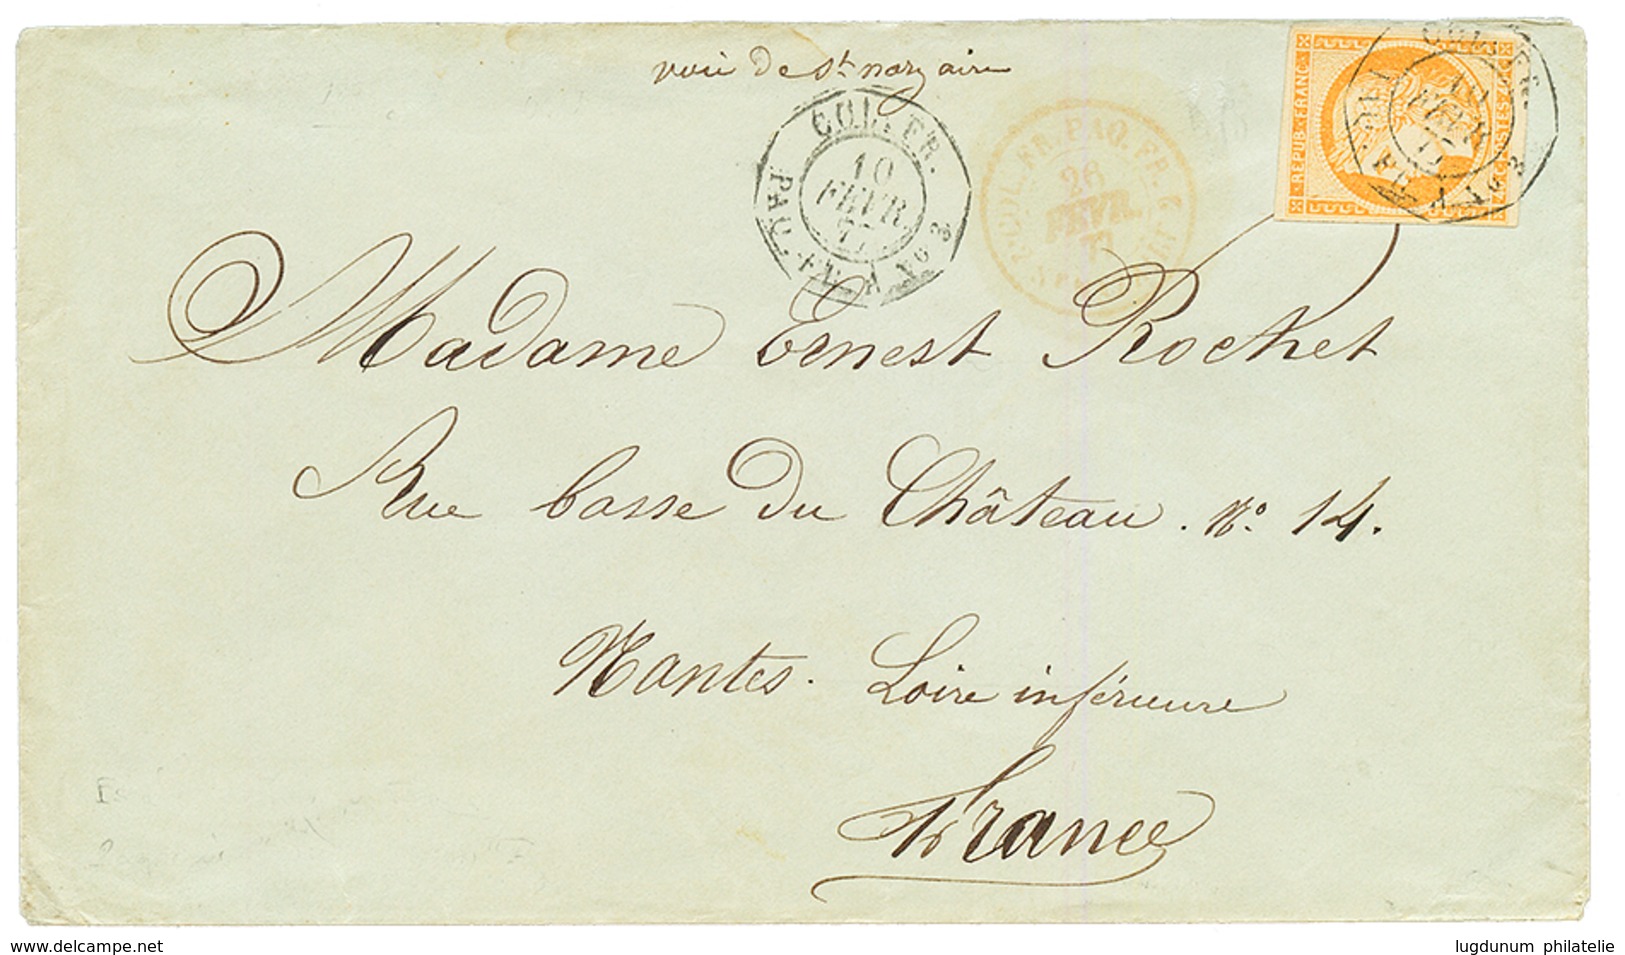 voie de St nazaire
COL. FR.
10
FEVR.
77
PAQ. FR. A No 3
COL. FR. PAQ. FR.
26
FEVR.
77
REPUB. FRANC.
POSTES
COL. FR.
10
FEVR.
PAQ. FR. A No 3
Madame Ernest Rochet
Rue basse du Château. No. 14.
Nantes. Loire inférieure
France
www.delcampe.net
lugdunum philatelie